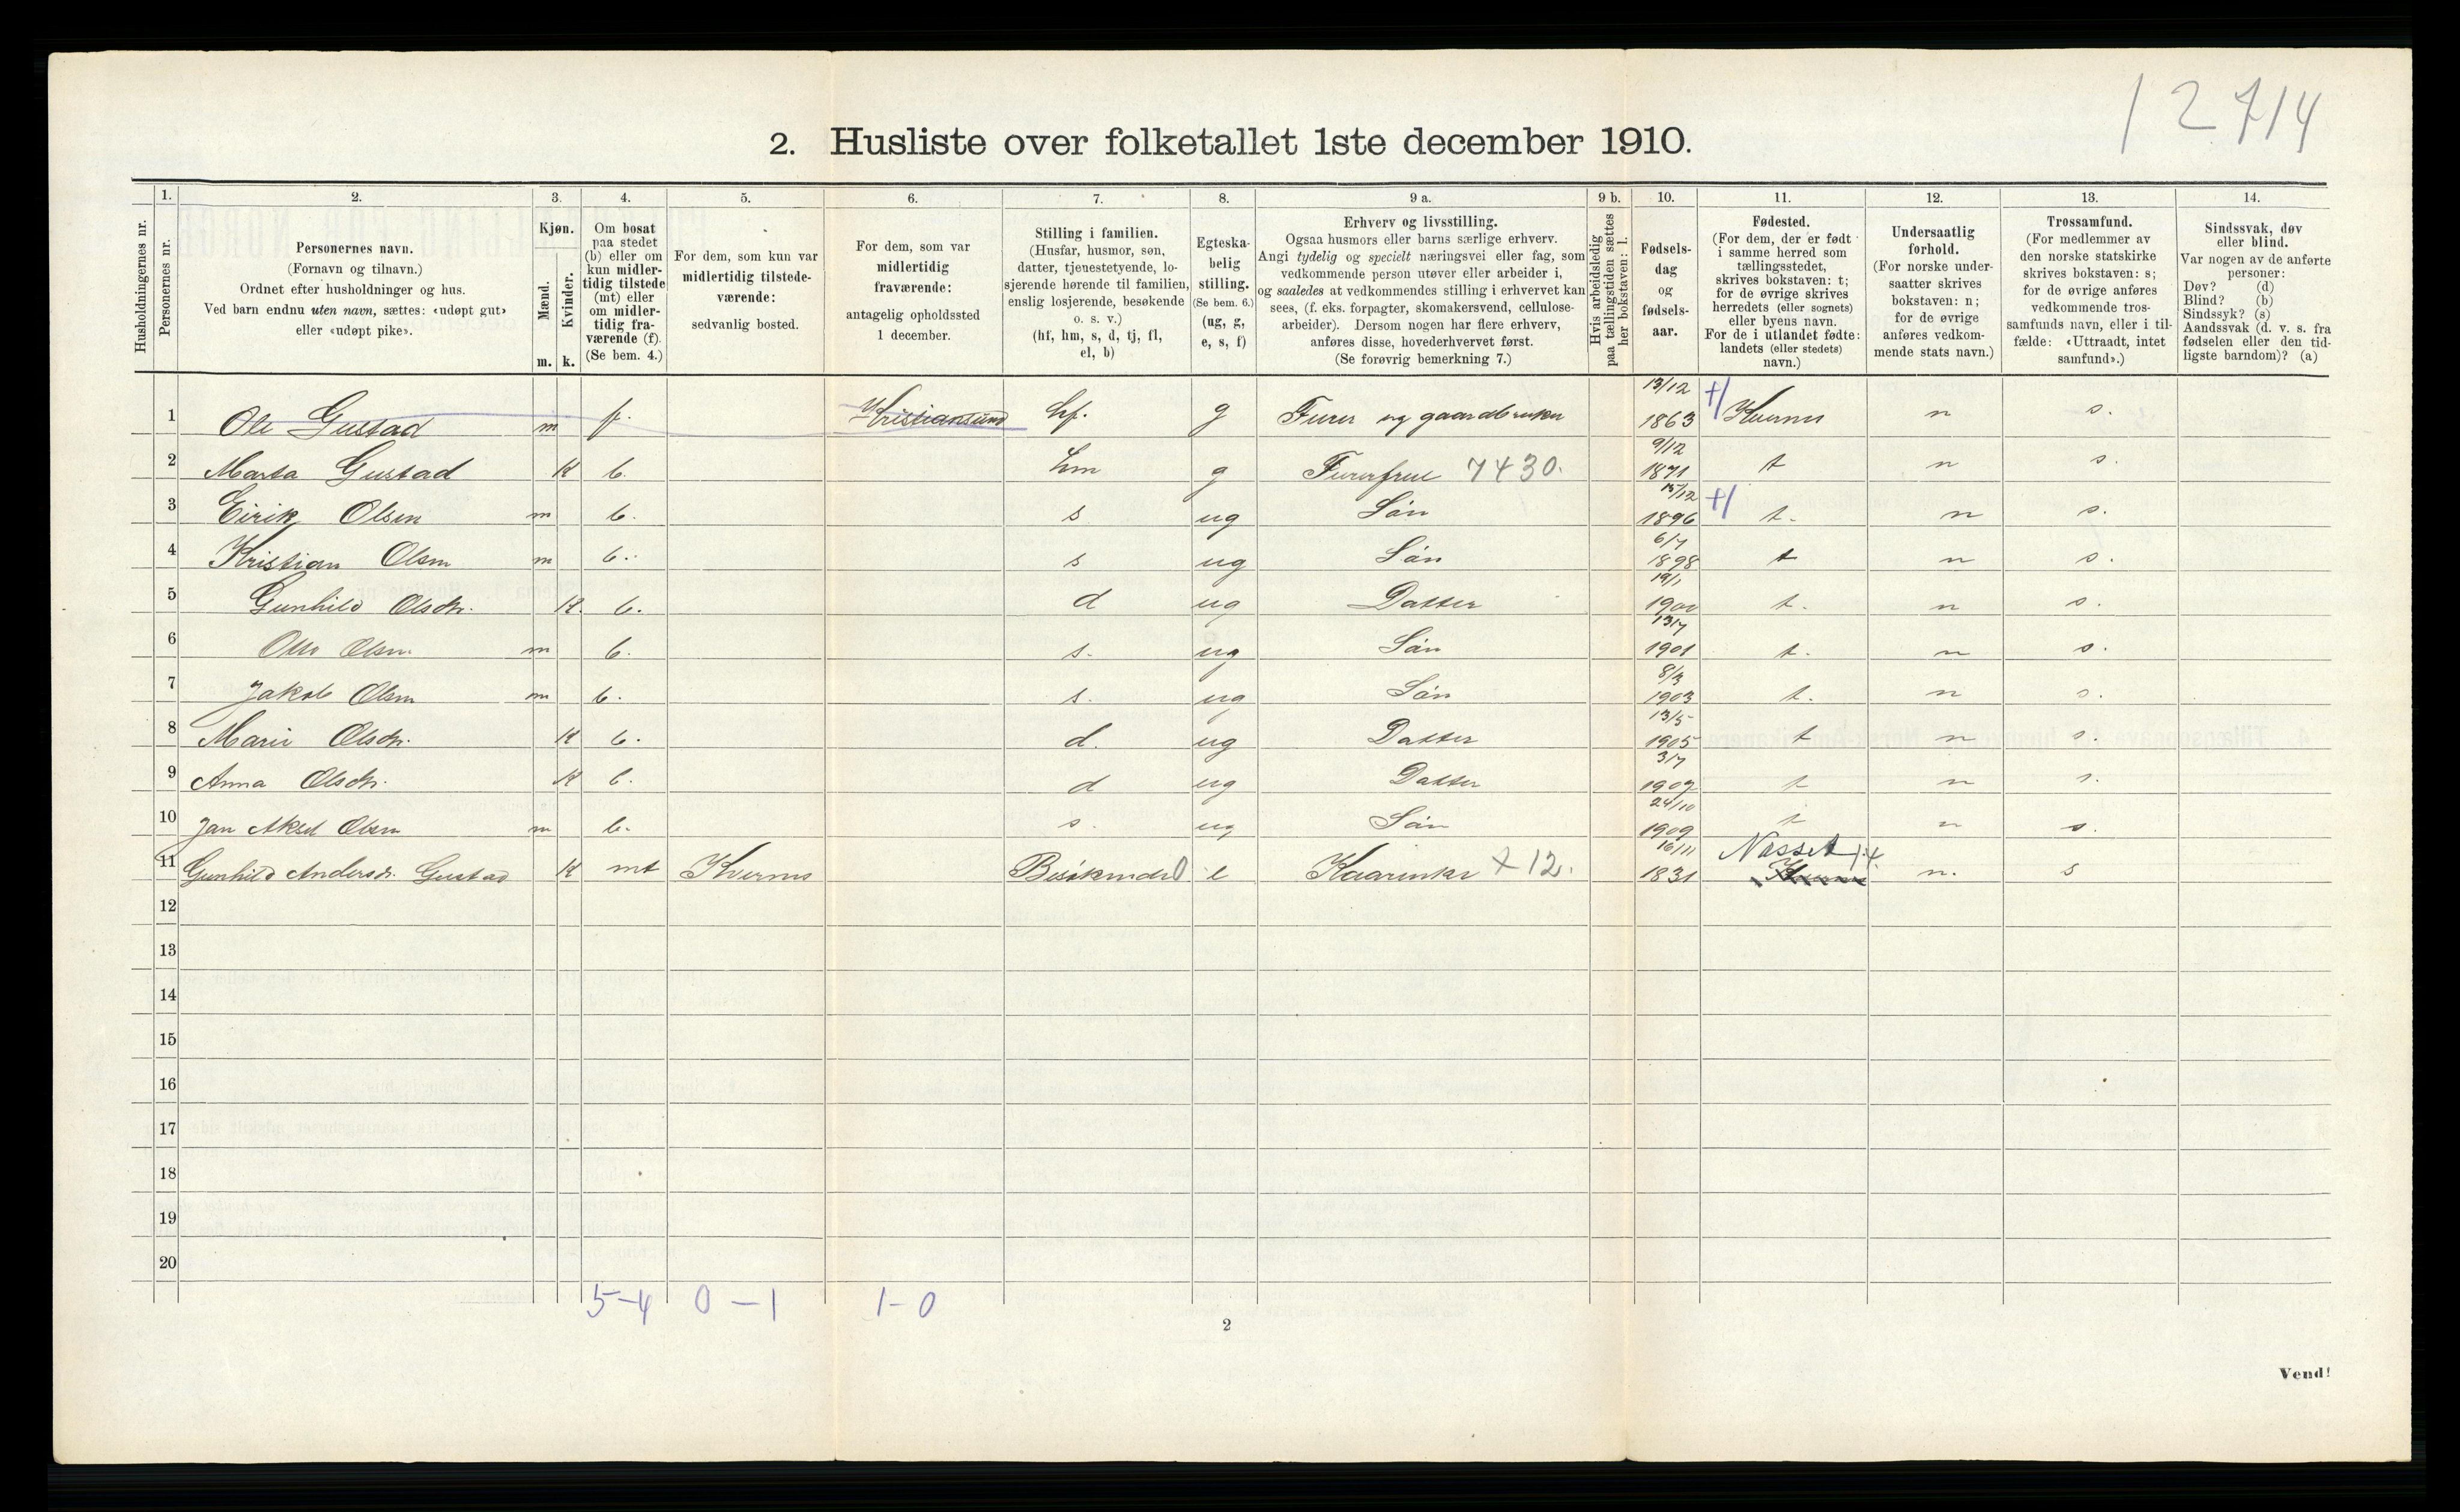 12714
2. Husliste over folketallet 1ste december 1910.
Husholdningernes nr.
1.
Personernes nr.
2.
Personernes navn.
(Fornavn og tilnavn.)
Ordnet efter husholdninger og hus.
Ved barn endnu uten navn, sættes: «udøpt gut»
eller «udøpt pike».
3.
Kjøn.
Mænd.
Kvinder.
m. k.
4.
Om bosat
paa stedet
(b) eller om
kun midler-
tidig tilstede
(mt) eller
om midler-
tidig fra-
værende (f).
(Se bem. 4.)
5.
For dem, som kun var
midlertidig tilstede-
værende:
sedvanlig bosted.
6.
For dem, som var
midlertidig
fraværende:
antagelig opholdssted
1 december.
7.
Stilling i familien.
(Husfar, husmor, søn,
datter, tjenestetyende, lo-
sjerende hørende til familien,
enslig losjerende, besøkende
o. s. v.)
(hf, hm, s, d, tj, fl,
el, b)
8.
Egteska-
belig
stilling.
(Se bem. 6.)
(ug, g,
e, s, f)
9 a.
Erhverv og livsstilling.
Ogsaa husmors eller barns særlige erhverv.
Angi tydelig og specielt næringsvei eller fag, som
vedkommende person utøver eller arbeider i,
og saaledes at vedkommendes stilling i erhvervet kan
sees, (f. eks. forpagter, skomakersvend, cellulose-
arbeider). Dersom nogen har flere erhverv,
anføres disse, hovederhvervet først.
(Se forøvrig bemerkning 7.)
9 b.
Hvis arbeidsledig
paa tællingstiden sættes
her bokstaven: l.
10.
Fødsels-
dag
og
fødsels-
aar.
11.
Fødested.
(For dem, der er født
i samme herred som
tællingsstedet,
skrives bokstaven: t;
for de øvrige skrives
herredets (eller sognets)
eller byens navn.
For de i utlandet fødte:
landets (eller stedets)
navn.)
12.
Undersaatlig
forhold.
(For norske under-
saatter skrives
bokstaven: n;
for de øvrige
anføres vedkom-
mende stats navn.)
13.
Trossamfund.
(For medlemmer av
den norske statskirke
skrives bokstaven: s;
for de øvrige anføres
vedkommende tros-
samfunds navn, eller i til-
fælde: «Uttraadt, intet
samfund».)
14.
Sindssvak, døv
eller blind.
Var nogen av de anførte
personer:
Døv? (d)
Blind? (b)
Sindssyk? (s)
Aandssvak (d. v. s. fra
fødselen eller den tid-
ligste barndom)? (a)
1 Ole Gustad m f. Kristiansund hf. g Furer og gaardbruker 13/12 1863 Kvernes n s.
2 Marta Gustad K b. hm g Furerfrue 7430. 9/12 1871 t n s.
3 Eirik Olsen m b. s ug Søn 15/12 1896 t. n s.
4 Kristian Olsen m b. s ug Søn 6/7 1898 t n s.
5 Gunhild Olsdtr. K. b. d ug Datter 19/1 1900 t. n s.
6 Otto Olsen m b. s. ug Søn 13/7 1901 t. n s.
7 Jakob Olsen m b. s. ug Søn 8/3 1903 t. n s.
8 Marie Olsdtr. K b. d. ug Datter 13/5 1905 t n s.
9 Anna Olsdtr. K b. d ug Datter 3/7 1907 t n s.
10 Jan Aksel Olsen m b. s. ug Søn 24/10 1909 t n s.
11 Gunhild Andersdr. Gustad K mt Kvernes e Kaarenke + 12. 16/11 1831 Nesset n. s
12
13
14
15
16
17
18
19
20
5-4 0-1 1-0
2
Vend!